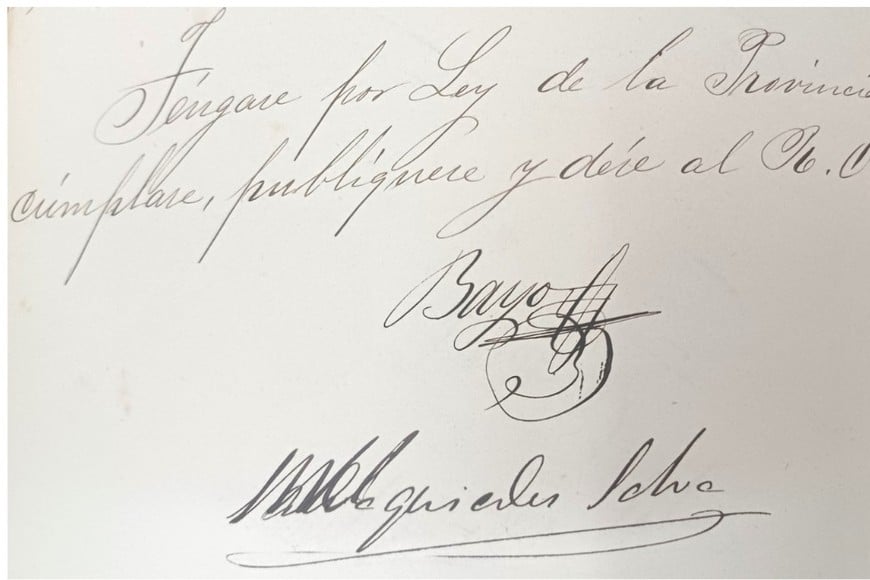 Téngase por Ley de la Provincia
cúmplase, publíquese y dése al R. O
Bayo
Melquiades Salva